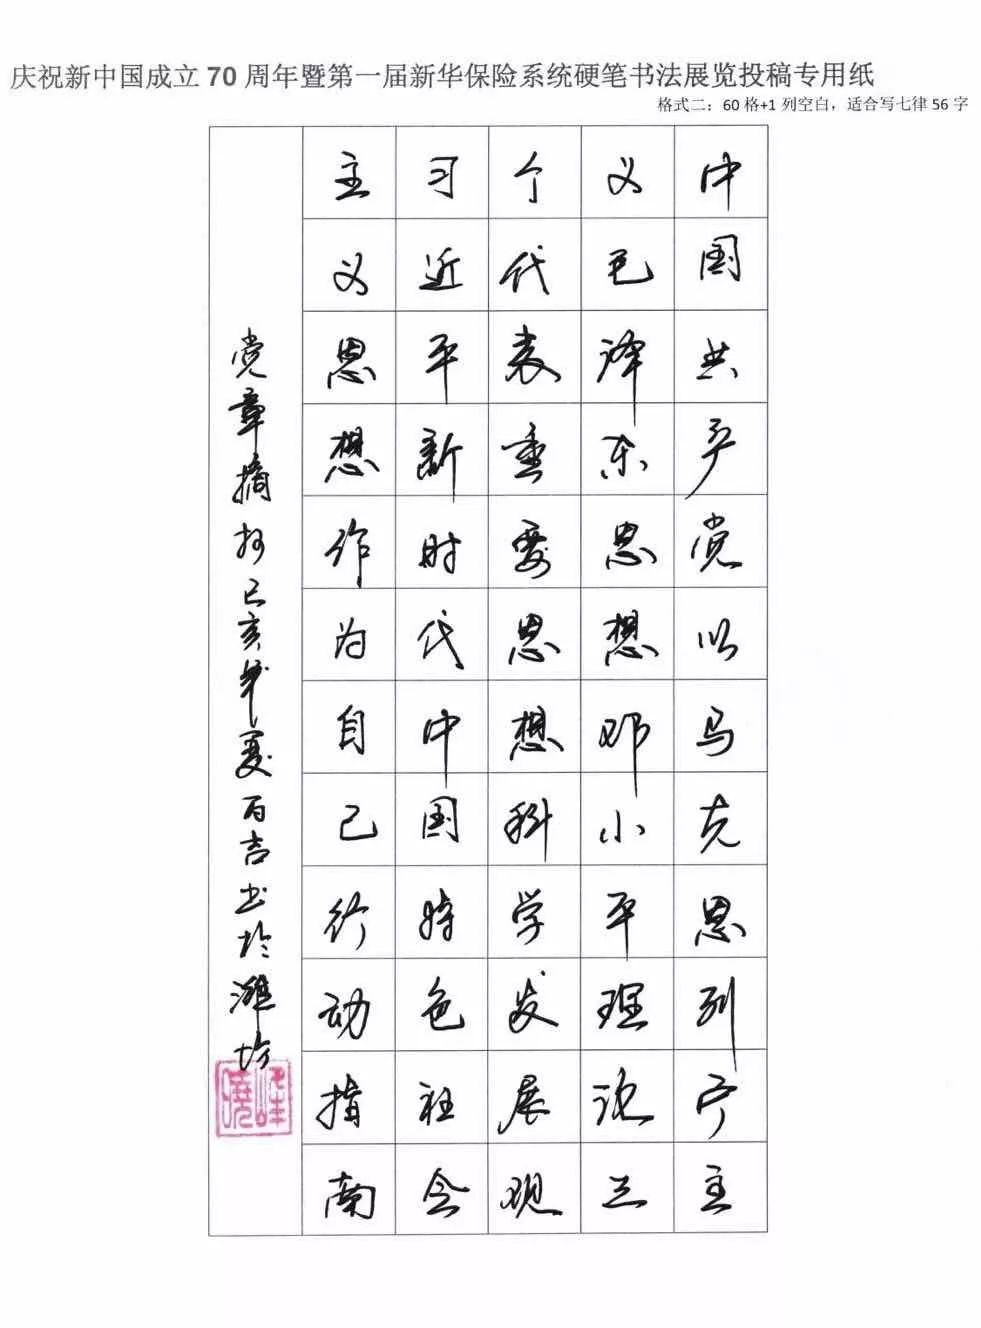 庆祝新中国成立70周年暨第一届新华保险系统硬笔书法展览投稿专用纸
格式二：60格+1列空白，适合写七律56字
中国共产党以马克思列宁主
义毛泽东思想邓小平理论三
个代表重要思想科学发展观
习近平新时代中国特色社会
主义思想作为自己行动指南
党章摘抄己亥年夏百吉书于潍坊
晓峰